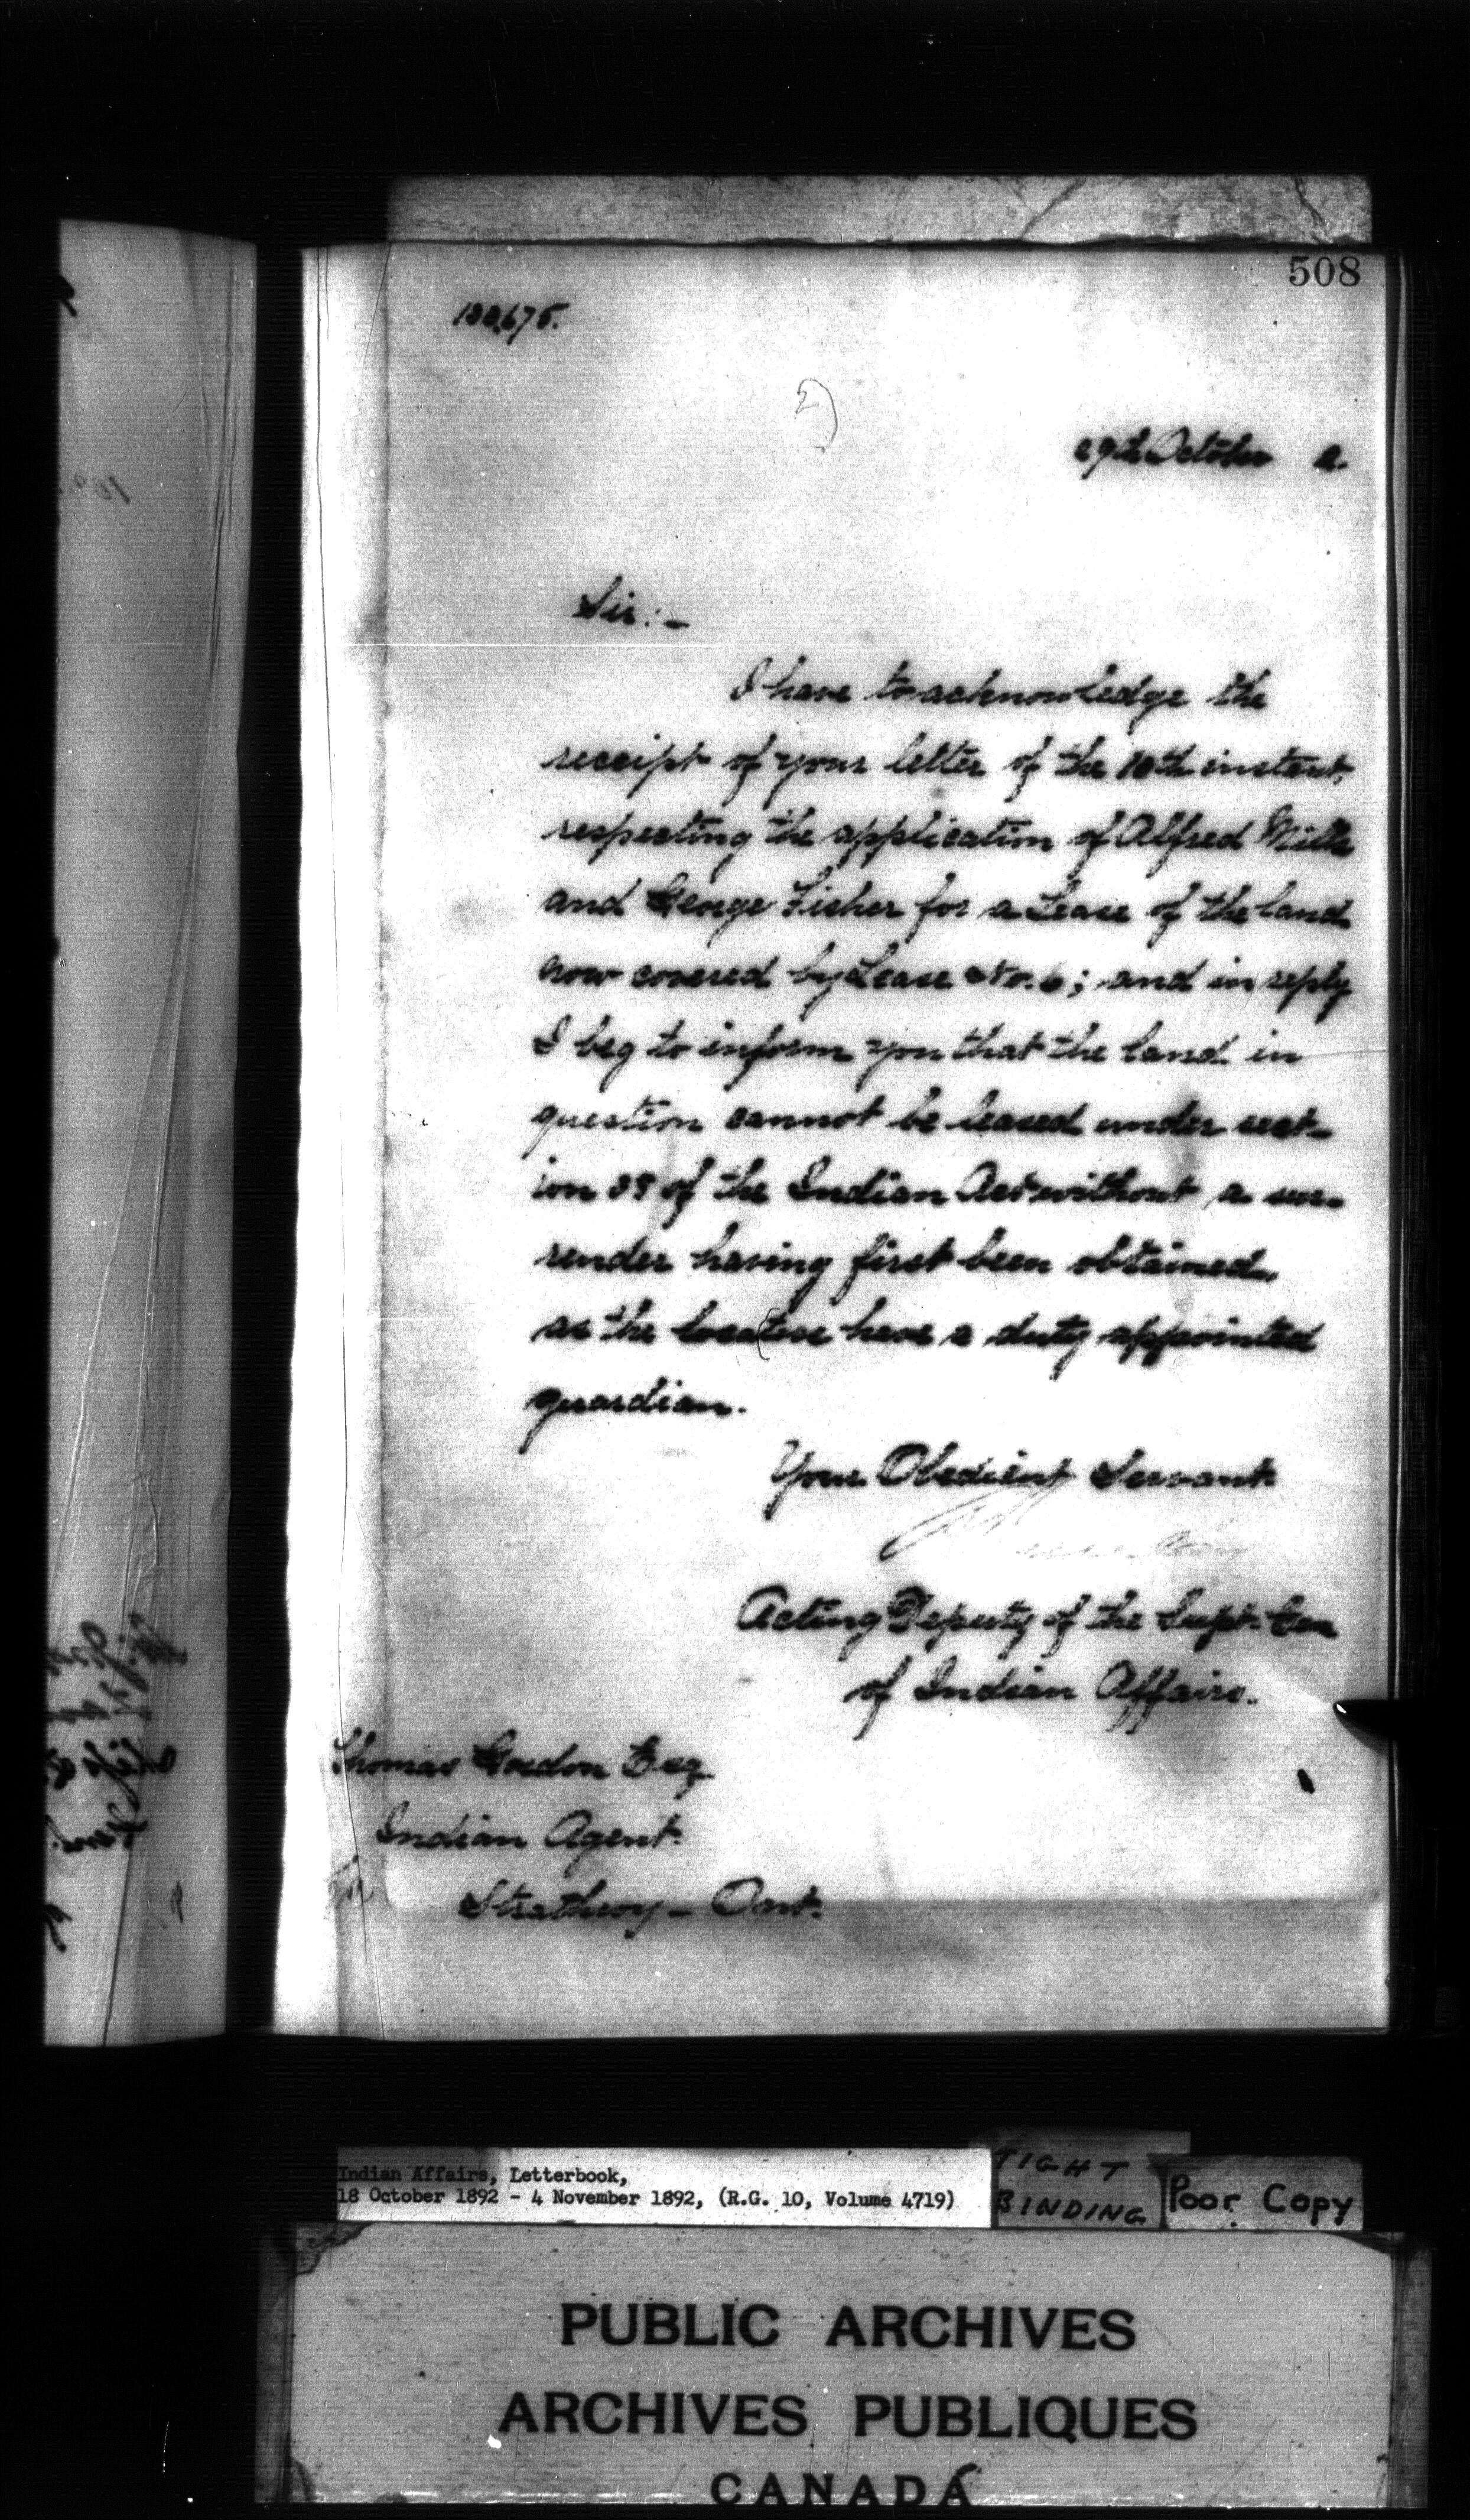 508
29th October 2.
Sir:-
I have to acknowledge the
receipt of your letter of the 10th instant,
respecting the application of Alfred Mills
and George Fisher for a Lease of the land
now covered by Lease No. 6; and in reply
I beg to inform you that the land in
question cannot be leased under sect-
ion of the Indian Act without a sur-
render having first been obtained,
as the locatees have a duly appointed
guardian.
Your Obedient Servant
Acting Deputy of the Supt. Gen
of Indian Affairs.
Thomas Gordon Esq
Indian Agent.
Strathroy - Ont.
Indian Affairs, Letterbook,
18 October 1892 - 4 November 1892, (R.G. 10, Volume 4719)
TIGHT
BINDING
Poor Copy
PUBLIC ARCHIVES
ARCHIVES PUBLIQUES
CANADA